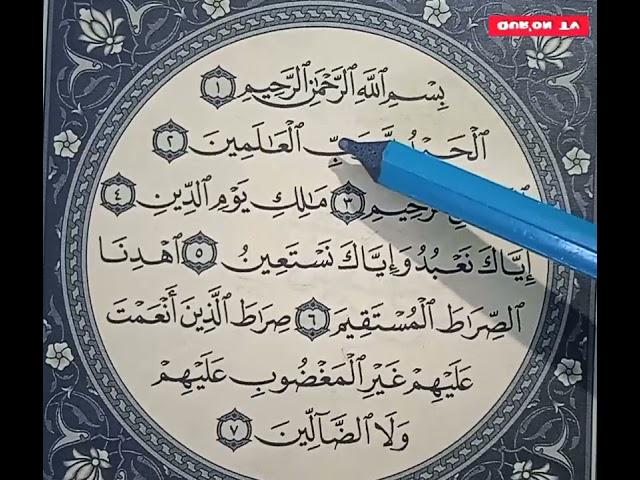 QUR'ON TV
بِسْمِ ٱللَّهِ ٱلرَّحْمَٰنِ ٱلرَّحِيمِ ١
ٱلْحَمْدُ رَبِّ ٱلْعَٰلَمِينَ ٢
ٱلرَّحِيمِ ٣ مَٰلِكِ يَوْمِ ٱلدِّينِ ٤
إِيَّاكَ نَعْبُدُ وَإِيَّاكَ نَسْتَعِينُ ٥ ٱهْدِنَا
ٱلصِّرَٰطَ ٱلْمُسْتَقِيمَ ٦ صِرَٰطَ ٱلَّذِينَ أَنْعَمْتَ
عَلَيْهِمْ غَيْرِ ٱلْمَغْضُوبِ عَلَيْهِمْ
وَلَا ٱلضَّآلِّينَ ٧